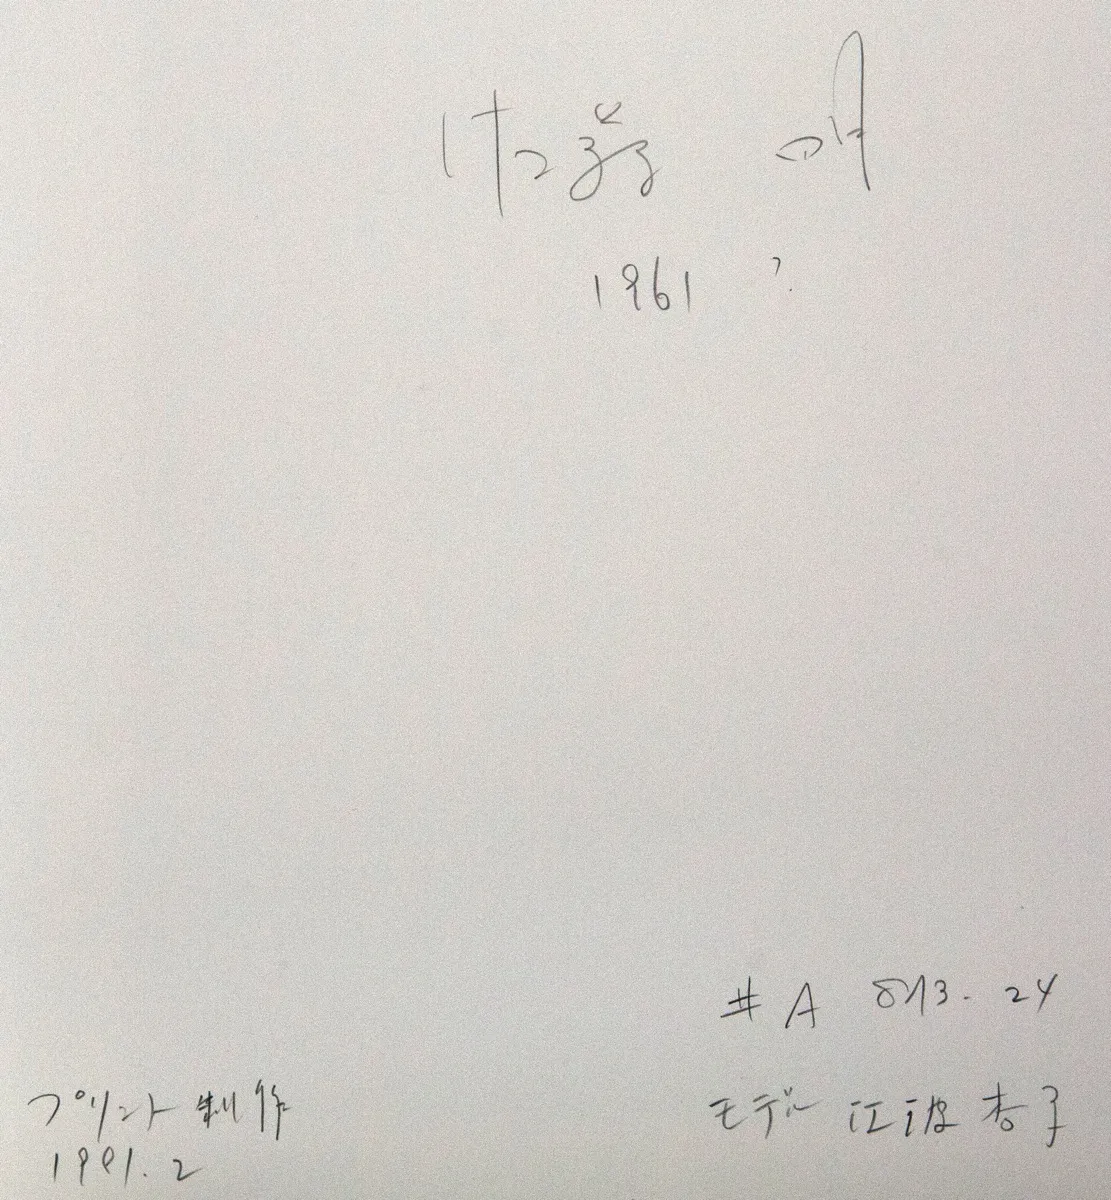 佐藤 明
1961 ?
#A 813.24
モデル 江波杏子
プリント制作
1991.2